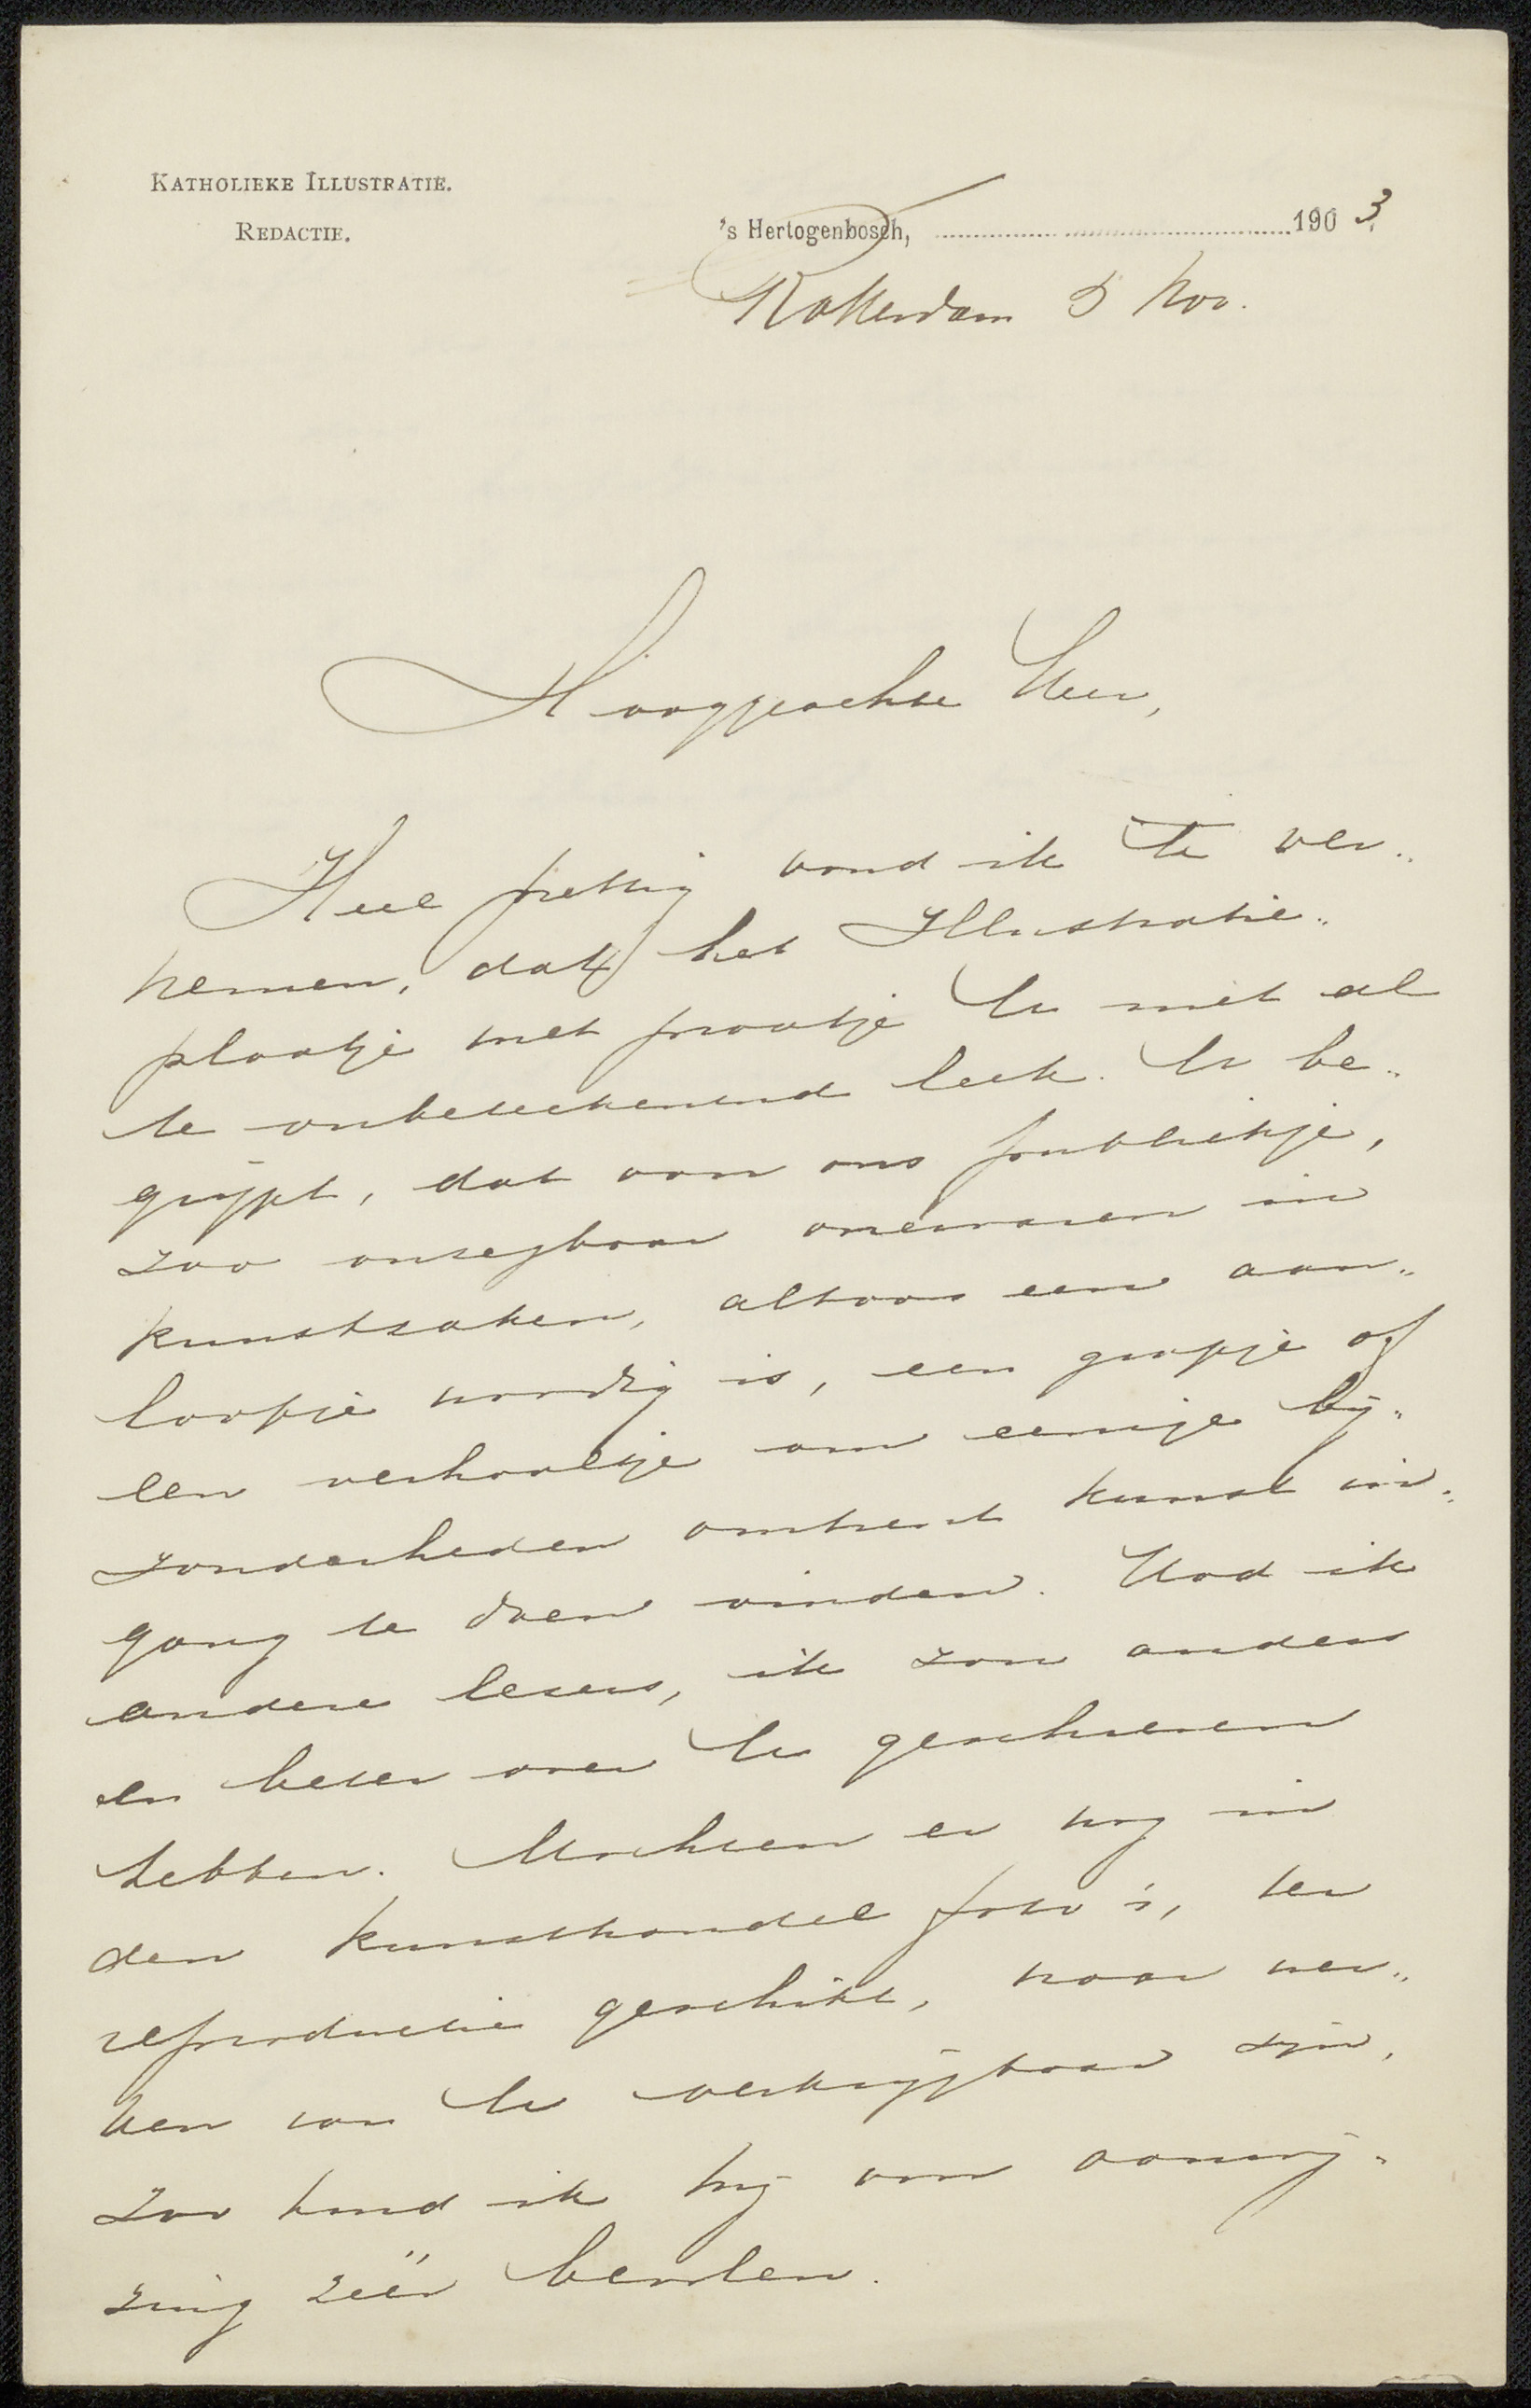 KATHOLIEKE ILLUSTRATIE.
REDACTIE.
's Hertogenbosch, 1903.
Rotterdam 5 Nov.
Hooggeachte Heer,
Heel prettig vond ik te ver„
nemen, dat het Illustratie„
plaatje met praatje U niet al
te onbeteekenend leek. U be„
grijpt, dat voor ons publiekje,
zoo onzegbaar onervaren in
kunstzaken, altoos een aan„
loopje noodig is, een grapje of
een verhaaltje om eenige bij„
zonderheden omtrent kunst in„
gang te doen vinden. Had ik
andere lezers, ik zou anders
en beter over U geschreven
hebben. Mochten er nog in
den kunsthandel foto's, ter
reproductie geschikt, naar wer„
ken van U verkrijgbaar zijn,
zoo houd ik mij om aanwij„
zing zéér bevolen.